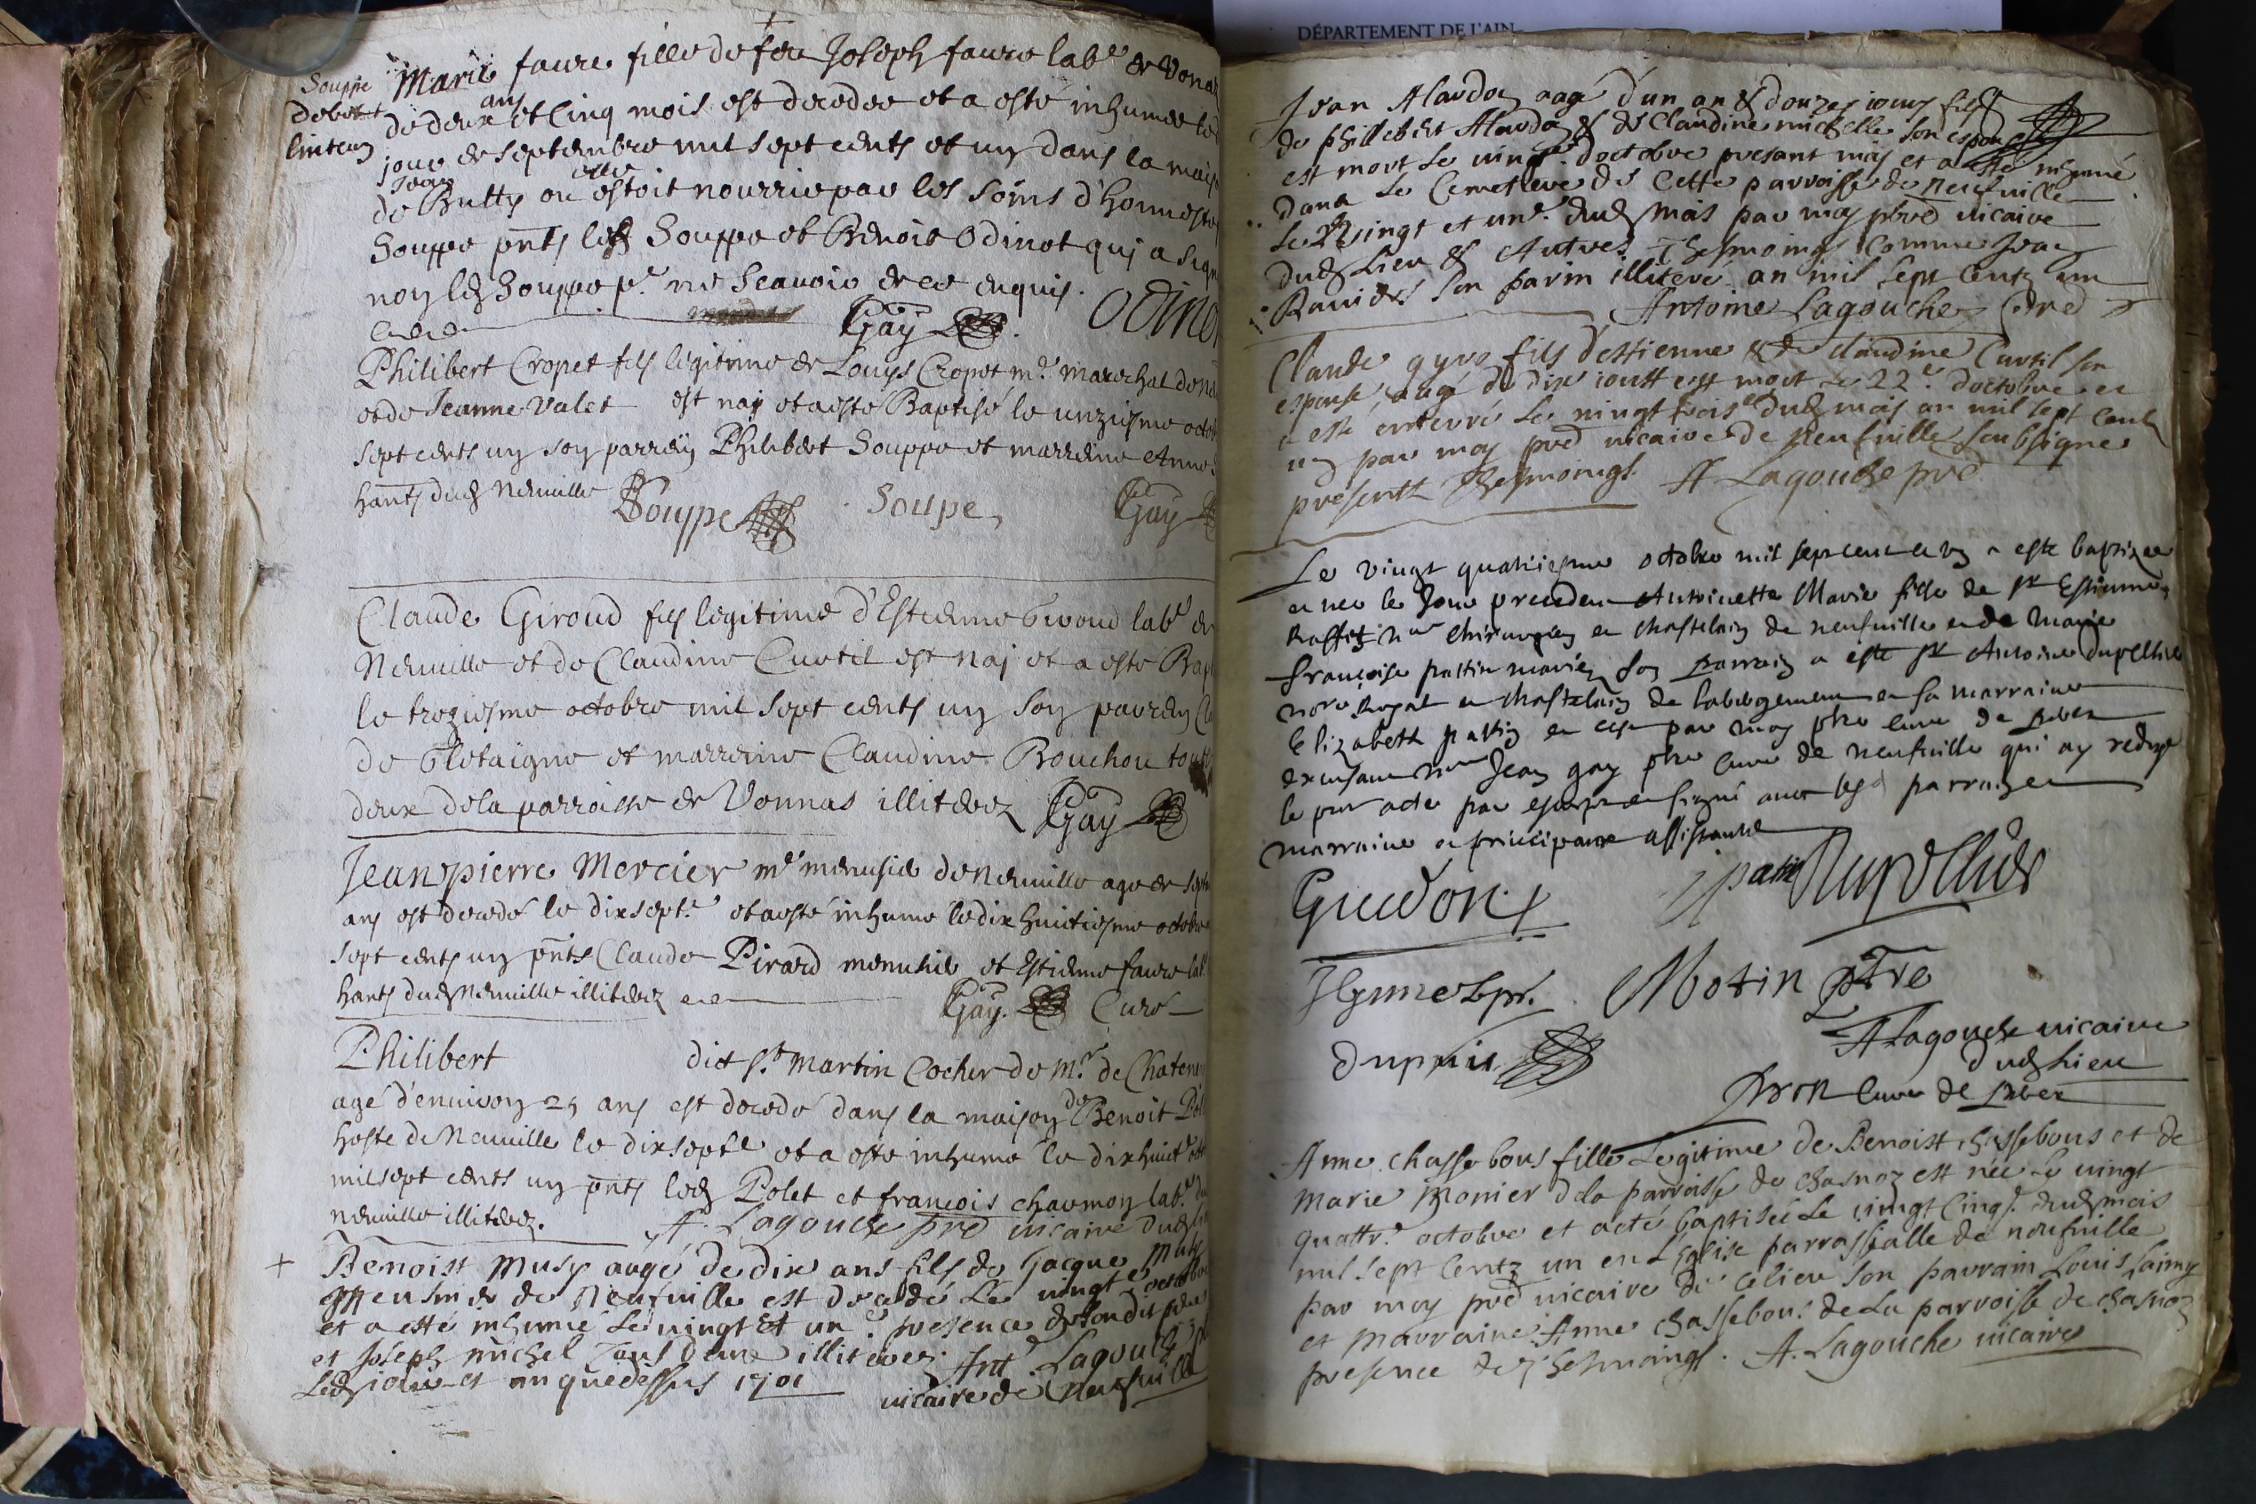 DÉPARTEMENT DE L'AIN
Souppe
debet
linteum
Marie faure fille de feu Joseph faure labr de Vonas
ans
de deux et Cinq mois est decedee et a esté inhumée le
jour de septembre mil sept cents et un dans la maison
Jean elle
de Butty ou estoit nourrie par les soins d'honneste
Souppe pnts led Souppe et Benoit Odinot qui a signé
non led Souppe pr ne scavoir de ce enquis.
Gay Odinot
Philibert Cropet fils legitime de Louys Cropet me marechal de
et de Jeanne Valet est nay et a esté Baptisé le unziesme octob
sept cents un son parrein Philibert Souppe et marreine Anne
hants dud Neuville Souppe Soupe Gay
Claude Giroud fils legitime d'Estienne Giroud labr de
Neuville et de Claudine Curtil est naj et a esté Bap
le treziesme octobre mil sept cents un son parrein
de Gletaigne et marreine Claudine Bouchou tout
deux de la parroisse de Vonnas illiterez Gay
Jean pierre Mercier me menusier de Neuville age de sept
ans est decedé le dixsepte et a esté inhumé le dix huictiesme octobre
sept cents un pnts Claude Pirard menusier et Estienne faure labr
hants dud Neuville illiterez Gay Curé
Philibert dict St martin Cocher de Mr de Chatene
agé d'enuiron 25 ans est decedé dans la maison de Benoit Pol
hoste de Neuuille le dixsepte et a esté inhumé le dix huict oct
mil sept cents un pnts led Polet et francois chaumon labr du
neuuille illiterez. A. Lagouche pre vicaire dud lieu
+ Benoist Musy aagé de dix ans fils de Jacque Musy
de Neufuille est decedé Le vingte octobre
et a esté inhumé Le vingt et une presence de son dit pere
et Joseph michel illiterez. Ant Lagouche
Led jour et an que dessus 1701 vicaire de Neufuille
Jean Alardon aagé d'un an & douzes iours fils
de phillebert Alardon & de Claudine michelle son espouse
est mort Le vingte d'octobre presant mois et a esté inhumé
dans Le Cemetiere de Cette parroisse de neufuille
Le vingt et une dud mois par moy pre vicaire
dud Lieu & Autres Thesmoings Comme Jean
Ravier son parin illiteré an mil sept Centz un
Antoine Lagouche
Claude gyro fils d'estienne & de claudine Curtil son
espouse, aagé de dix iours est mort Le 22e d'octobre et
a esté enterré Le vingt trois dud mois an mil sept Centz
un par moy pre vicaire de Neufuille soubsigné
presentz Thesmoings. A Lagouche pre
Le vingt quatriesme octobre mil sept cent et un a este baptizee
et nee le Jour precedent Antoinette Marie fille de sr Estienne
Raffet me chirurgien et chastelain de neufuille et de Marie
françoise pattin mariez son parrain a este sr Antoine Dupellier
nore Royal et chastelain de labergement et sa marraine
Elizabeth pattin et ce par moy pbre cure de
excusant mre Jean gay pbre cure de neufuille qui ay redigé
le pnt acte par et signé avec lesd parrain et
marraine et principaux assistants
Guedon patin Dupellier
Motin ptre
dupuis A Lagouche vicaire
dud lieu
cure de
Anne chassebous fille Legitime de Benoist chassebous et de
Marie Monier d la parroisse de chasnoz est née Le vingt
quattre octobre et a eté baptisée Le vingt Cinqe dud mois
mil sept Centz un en L'Eglise parrossialle de neufuille
par moy pre vicaire de ce lieu son parrain Louis Laimy
et marraine Anne chassebous de La parroisse de chasnoz
presence de Thesmoings. A. Lagouche vicaire